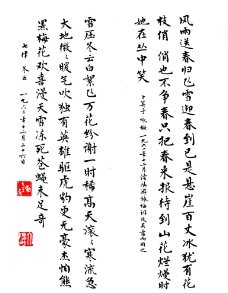 風雨送春归飞雪迎春到已是悬崖百丈冰犹有花
枝俏俏也不争春只把春来报待到山花烂熳时
她在丛中笑 卜算子 咏梅 一九六一年十二月读陆游咏梅词反其意而用之
雪压冬云白絮飞万花纷谢一时稀高天滚々寒流急
大地微々暖气吹独有英雄驱虎豹更无豪杰怕熊
罴梅花欢喜漫天雪冻死苍蝇未足奇
七律 冬云 一九六二年十二月二十六日